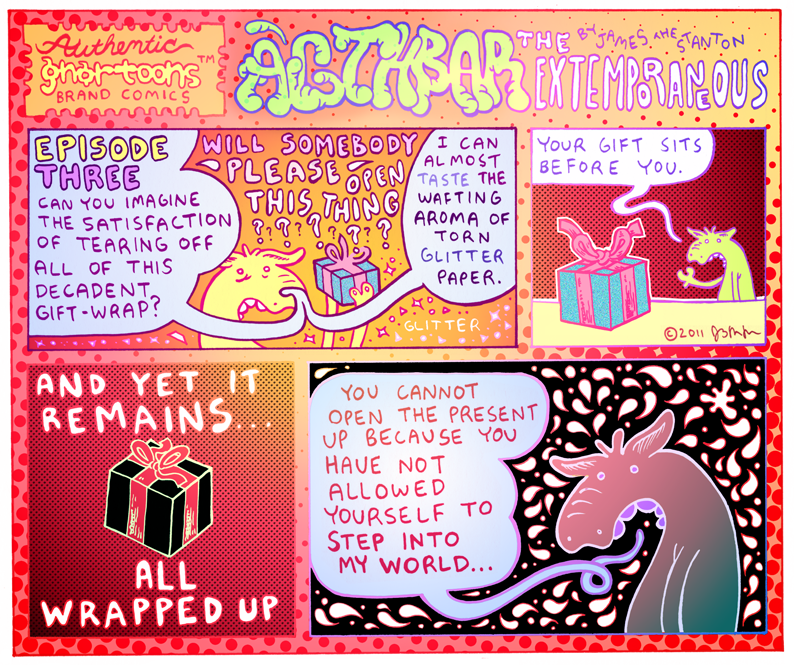 Authentic
gnartoons™
BRAND COMICS
AGTHBAR
THE
BY JAMES THE STANTON
EXTEMPORANEOUS
EPISODE
THREE
CAN YOU IMAGINE
THE SATISFACTION
OF TEARING OFF
ALL OF THIS
DECADENT
GIFT-WRAP?
WILL SOMEBODY
PLEASE OPEN
THIS THING
????????
I CAN
ALMOST
TASTE THE
WAFTING
AROMA OF
TORN
GLITTER
PAPER.
GLITTER
YOUR GIFT SITS
BEFORE YOU.
©2011
AND YET IT
REMAINS...
ALL
WRAPPED UP
YOU CANNOT
OPEN THE PRESENT
UP BECAUSE YOU
HAVE NOT
ALLOWED
YOURSELF TO
STEP INTO
MY WORLD...